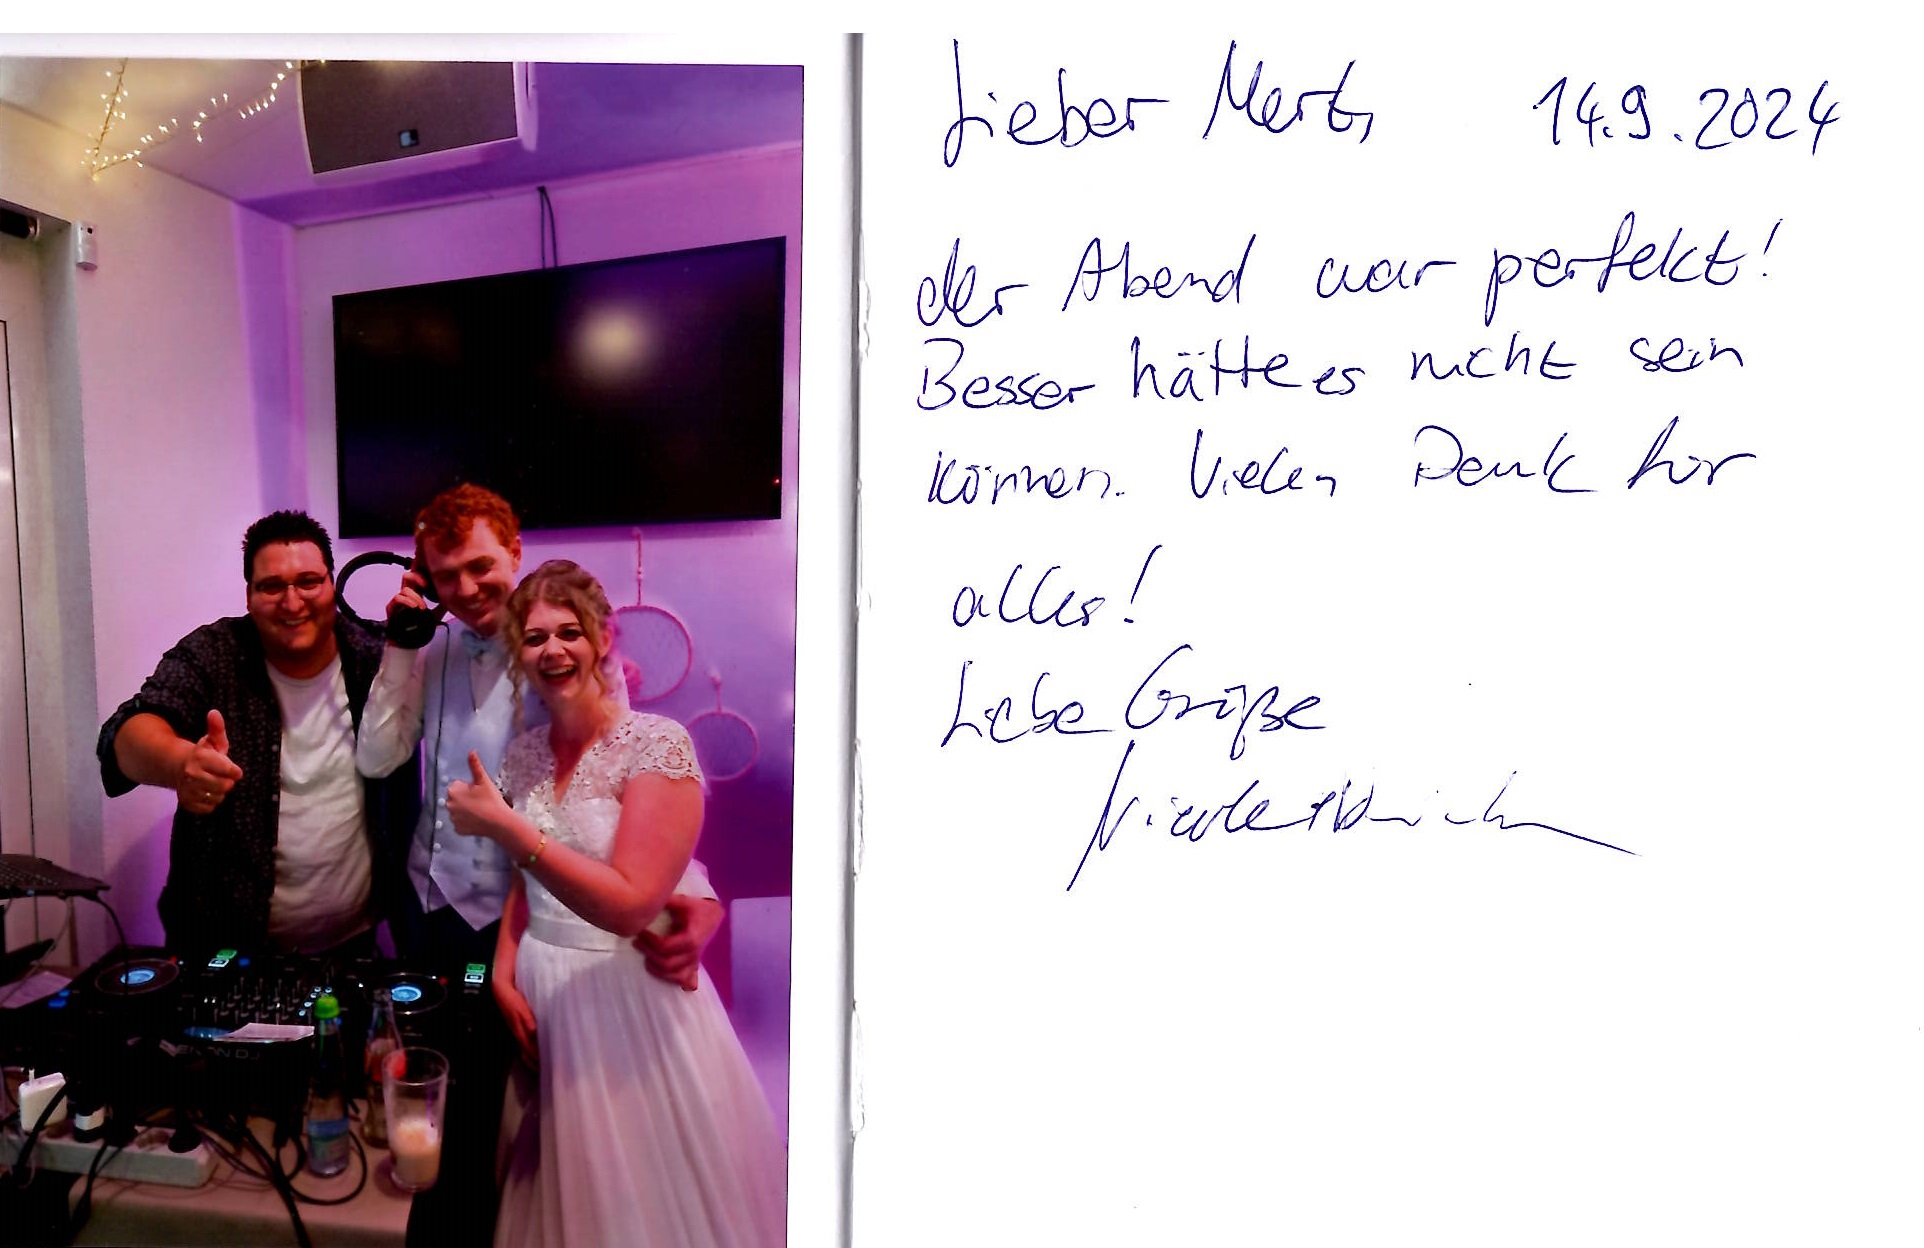 Lieber Mert, 14.9.2024
der Abend war perfekt!
Besser hätte es nicht sein
können. Vielen Dank für
alles!
Liebe Grüße
Nicole +
DENON DJ